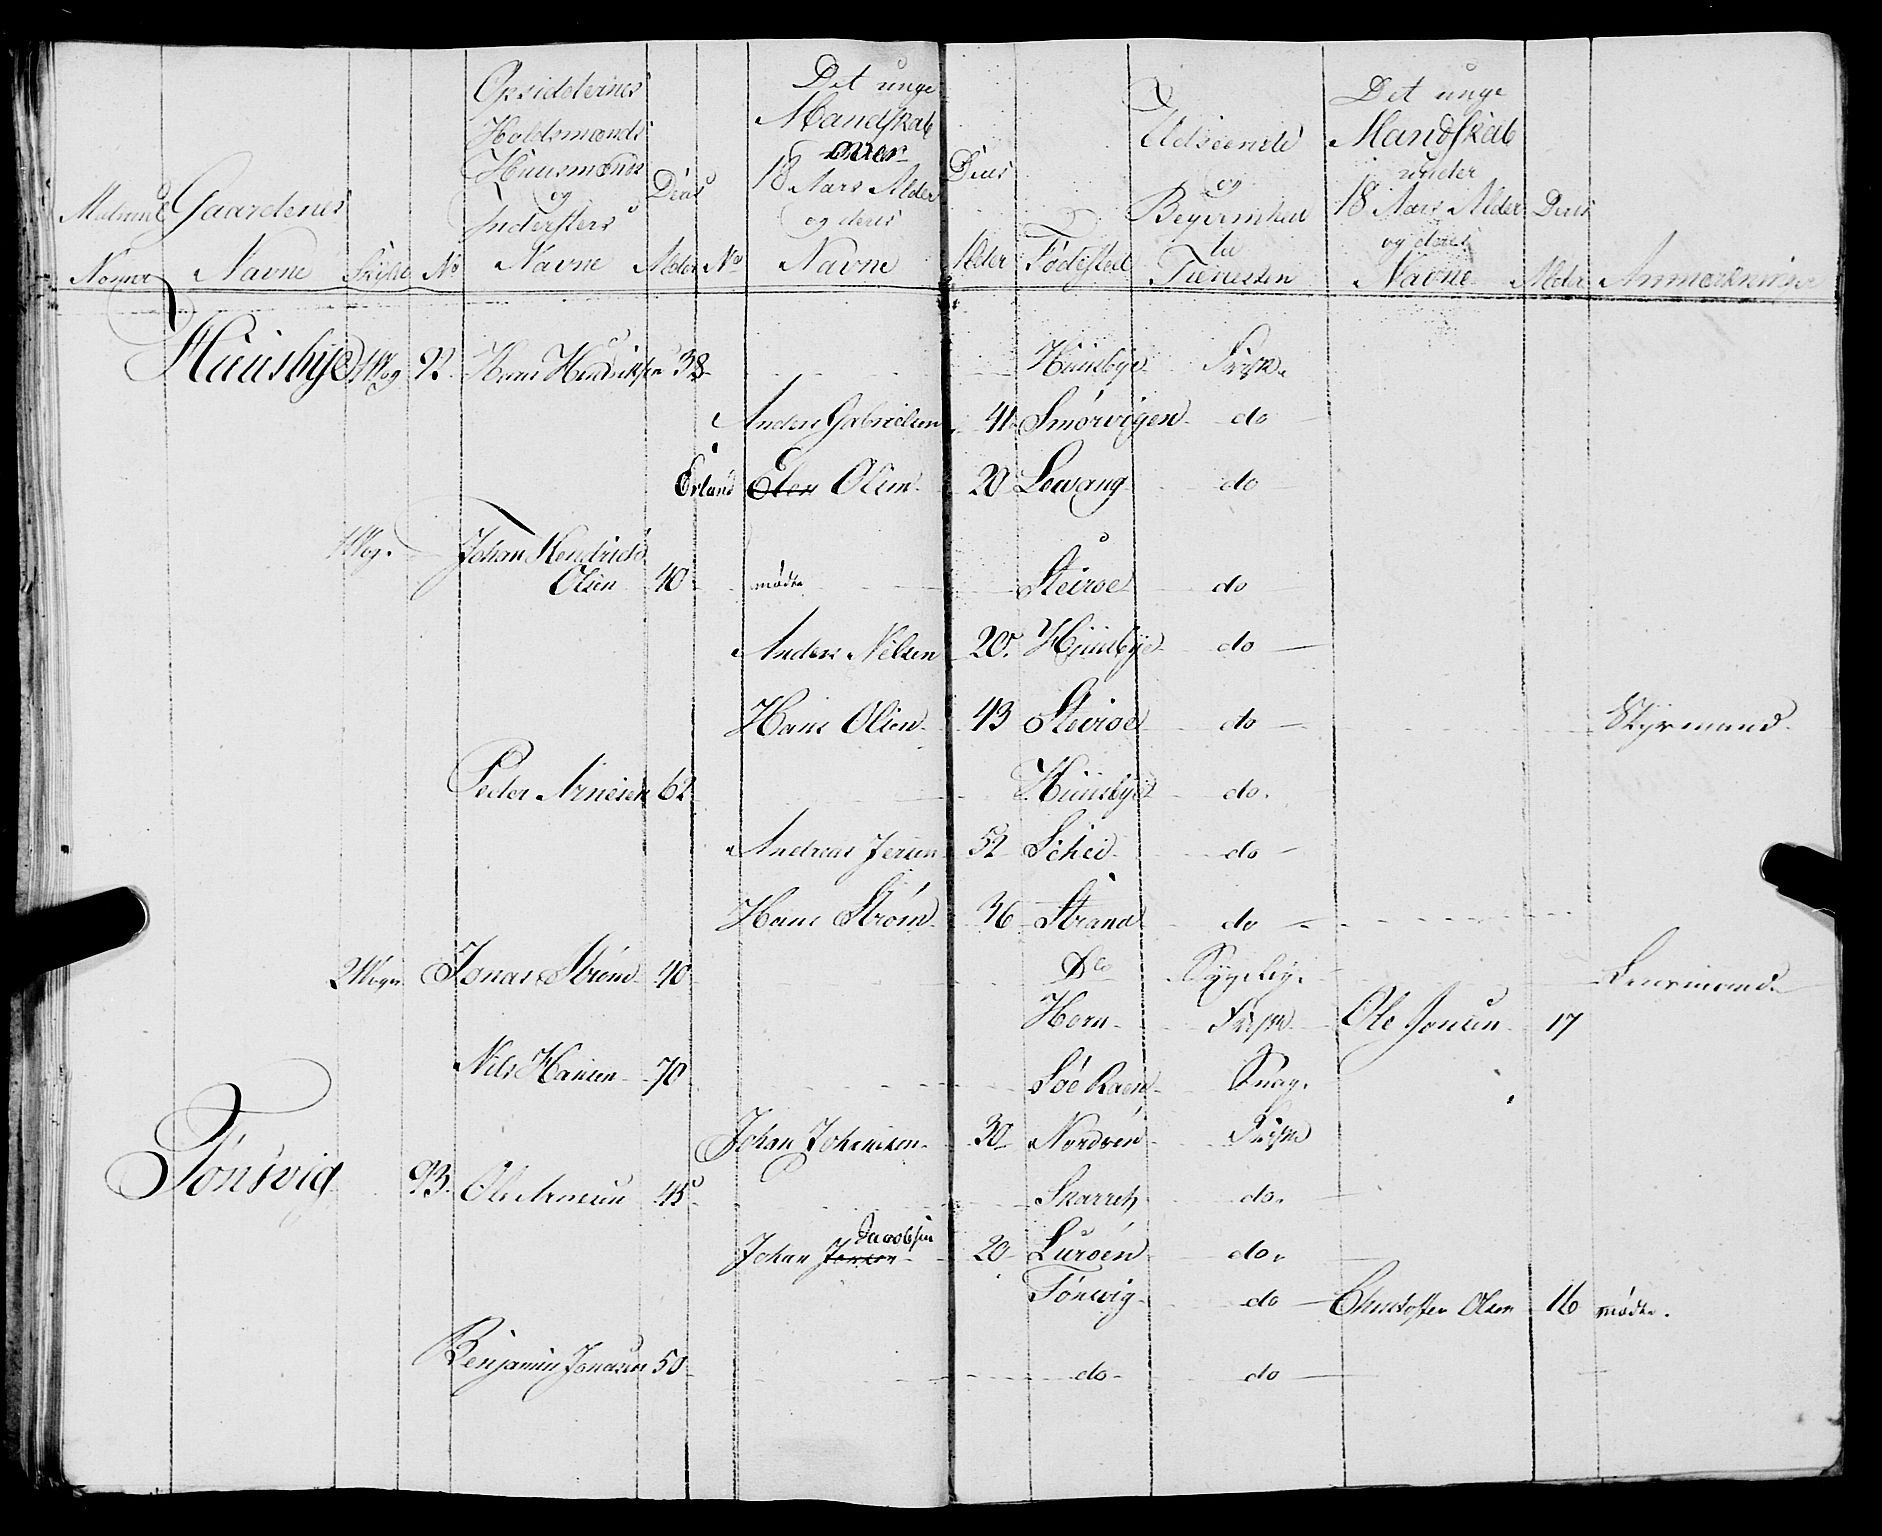 Matricul Nomer
Gaardenes Navne
Skyld
No
Opsidelernes Holdsmænds Huusmænds og Indersters Navne
Deres Alder
No
Det unge Mandskab over 18 Aars Alder og deres Navne
Deres Alder
Födested
Udseende og Beqvemhed til Tienesten
Det unge Mandskab under 18 Aars Alder og deres Navne
Deres Alder
Anmærkning
Huusbye 1 Vog 92. Hans Hendriksen 38 Huusbye Frisk
Anders Gabrielsen 41 Smörvigen do
Erland Elen Olsen 20 Lovang do
1 Vog. Johan Hendrich Olsen 40 mödte Steiroe do
Anders Nilsen 20. Huusbye do
Hans Olsen 43 Steiroe do Styrmand
Peder Arnesen 62 Huusbye do.
Andreas Jensen 52 Schei do
Hans Ström 36 Strand do
2 Voger Jonas Ström 40 Do Sygelig. Lensmand
Horn Frisk Ole Jonsen 17
Nils Hansen 70 Söe Raen Svag.
Johan Johansen 30 Nordven Frisk
Tönsvig 93. Ole Arnesen 45 do.
Johan Jonsen Jacobsen 20 Luröen do.
Tönsvig do Christoffer Olsen 16 mödte.
Benjamin Jonasen 50 do do